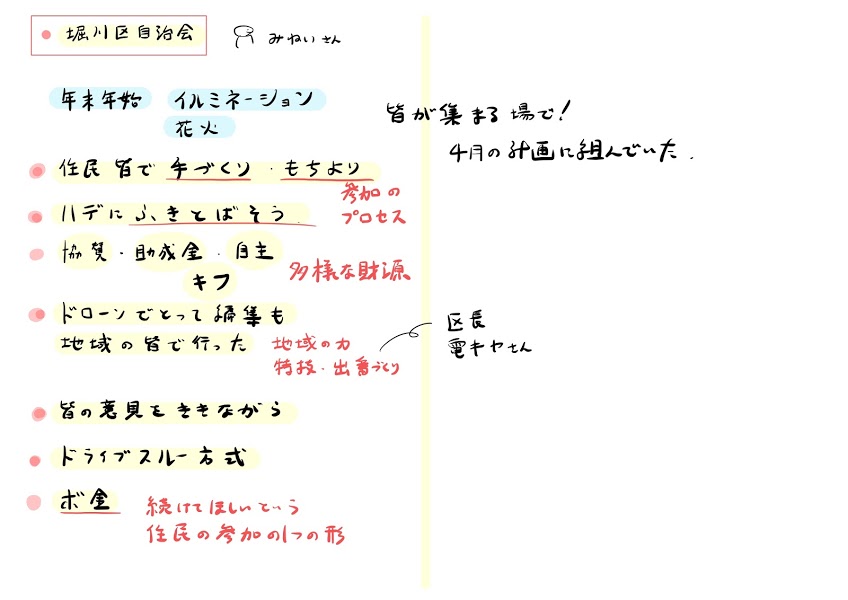 堀川区自治会
みねいさん
年末年始 イルミネーション
花火
皆が集まる場で!
4月の計画に組んでいた.
住民皆で手づくり・もちより
参加の
プロセス
ハデにふきとばそう
協賛・助成金・自主
キフ
多様な財源
ドローンでとって編集も
地域の皆で行った
地域の力
特技・出番づくり
区長
電キヤさん
皆の意見をききながら
ドライブスルー方式
ボ金
続けてほしいという
住民の参加の1つの形